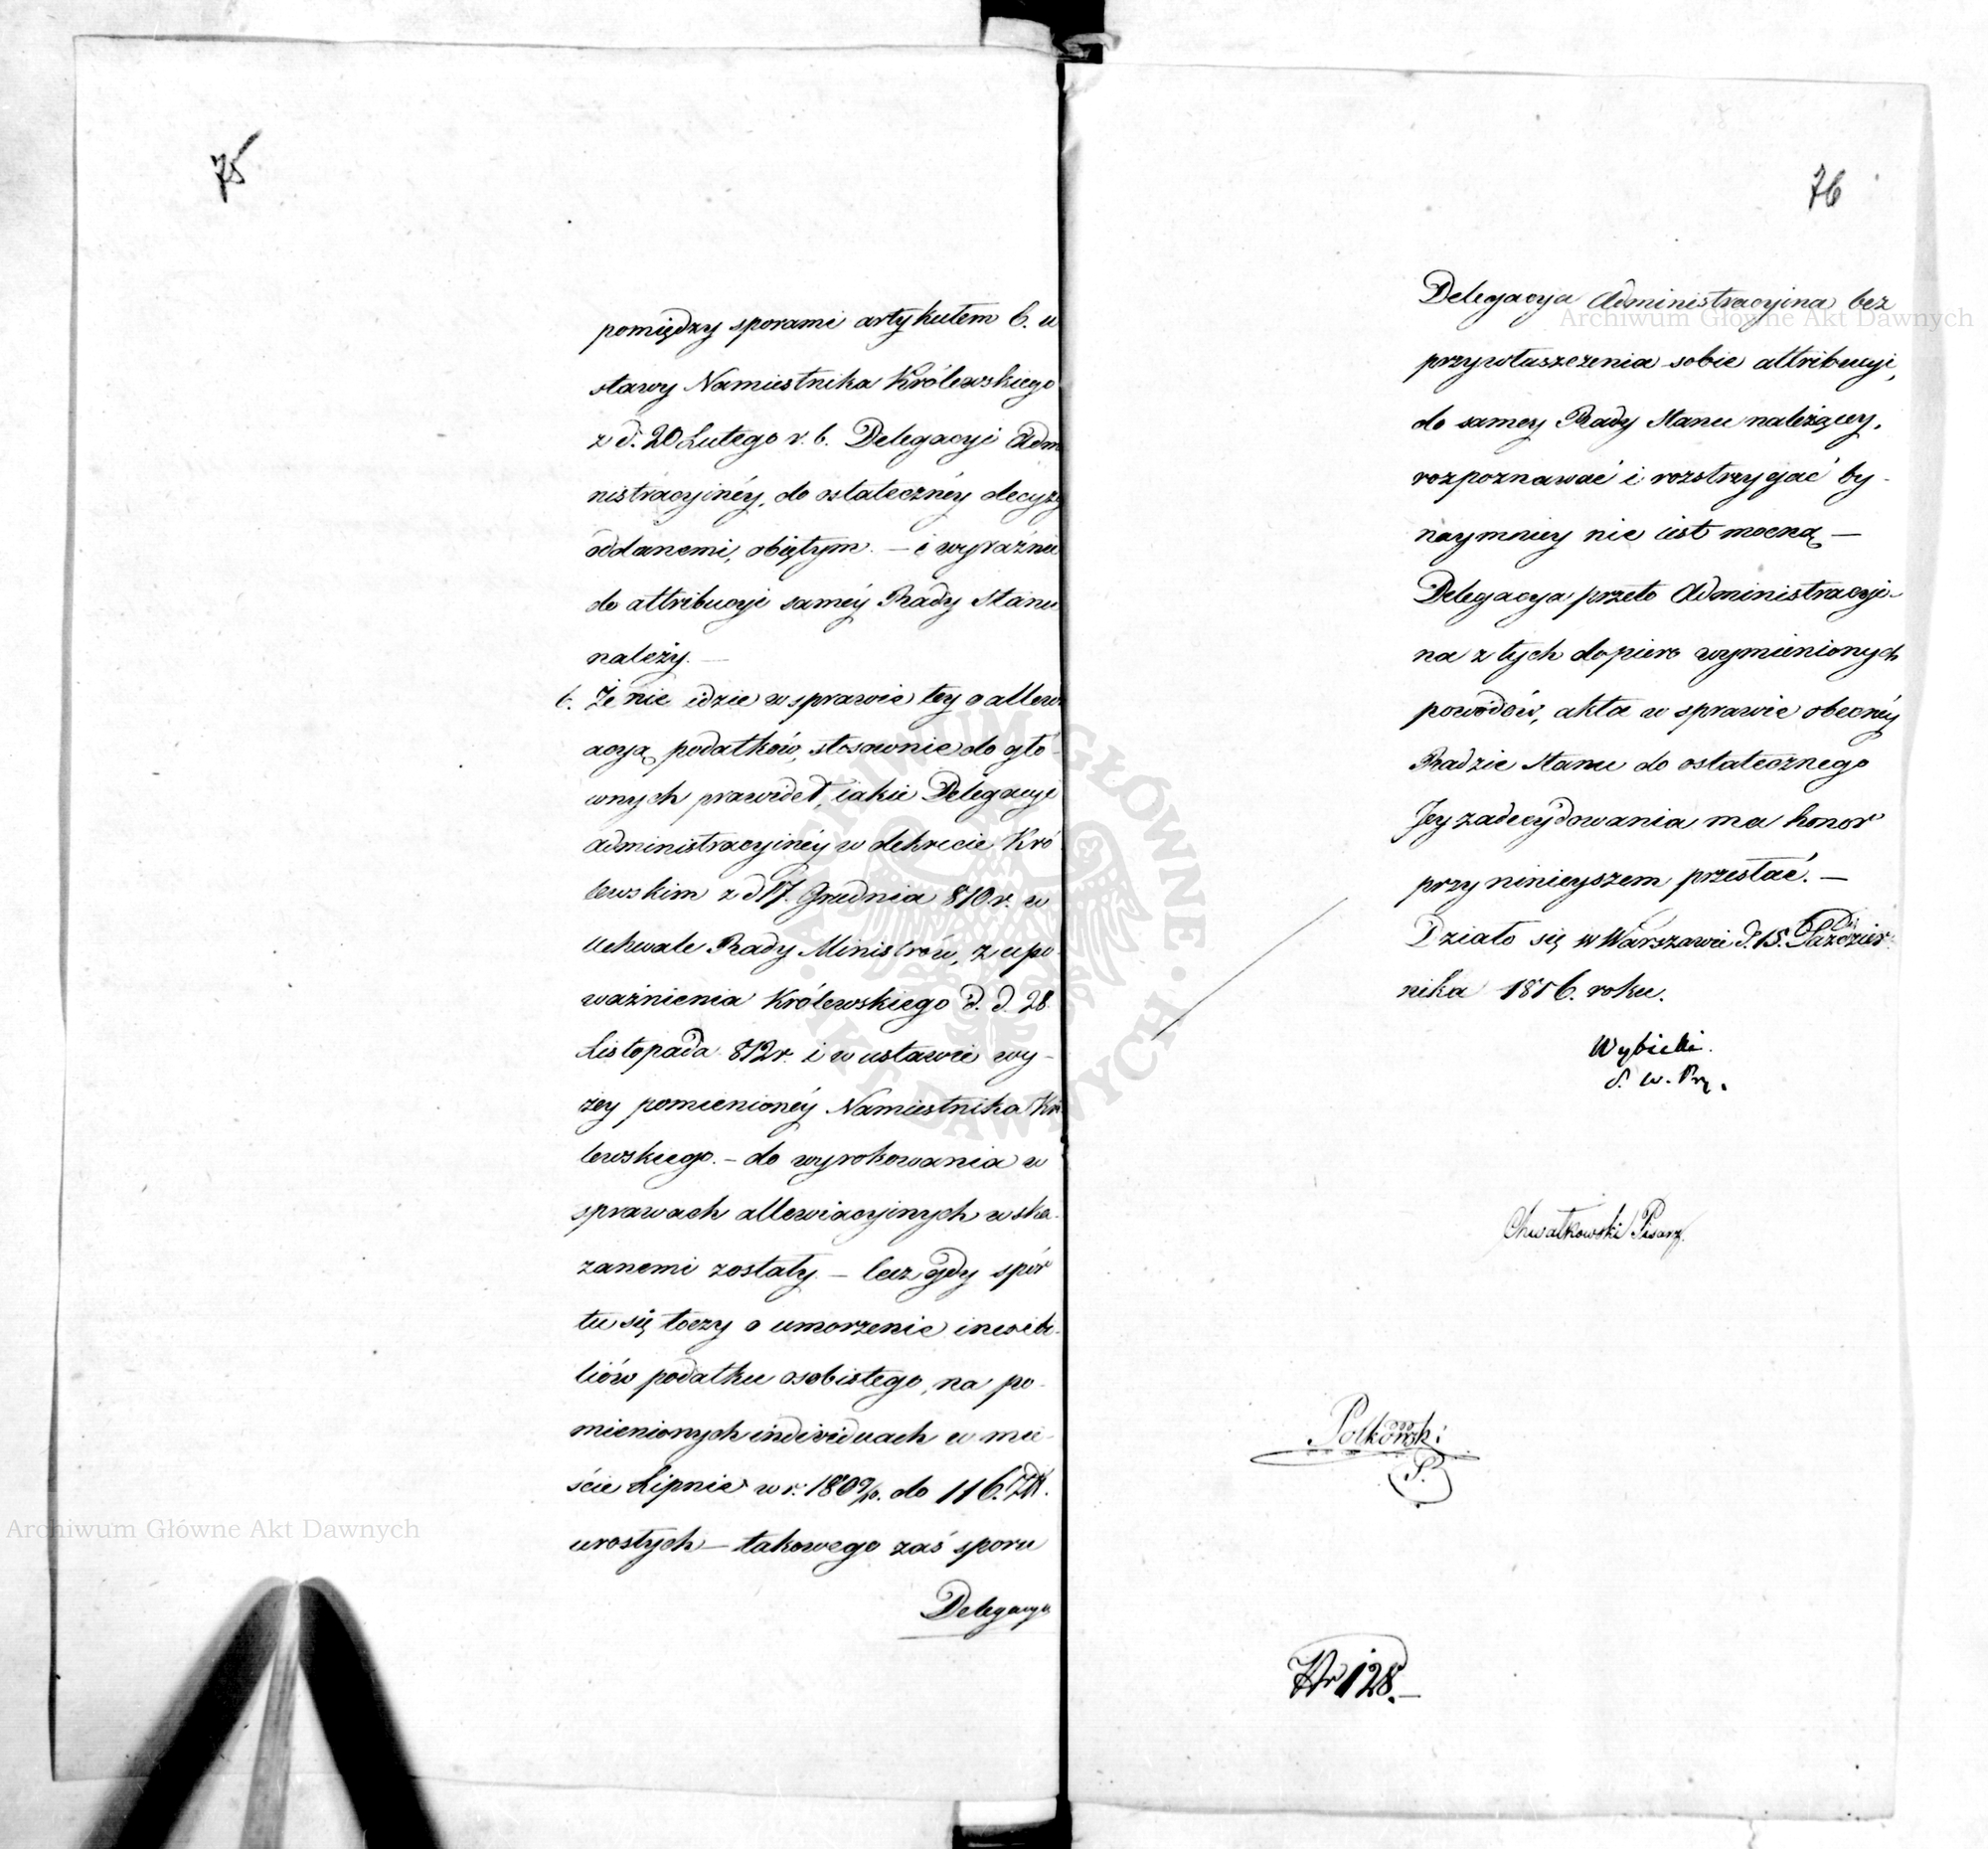 75
pomiędzy sporami artykułem 6. u
stawy Namiestnika Królewskiego
z d. 20 Lutego r. b. Delegacyi Adm
nistracyinéy, do ostatecznéy decyzy
oddanemi, obiętym. — i wyraźnie
do attribucyi saméy Rady Stanu
należy. —
6. Że nie idzie w sprawie tey o allewi
acyą podatków, stosownie do głó-
wnych prawideł, iakie Delegacyi
administracyinéy w dekrecie Kró
lewskim z d 17. Grudnia 810 r. w
Uchwale Rady Ministrów, z upo
ważnienia Królewskiego d. d. 28
Listopada 812 r. i w ustawie wy-
żey pomienionéy Namiestnika Kró
lewskiego. — do wyrokowania w
sprawach allewiacyinych wska-
zanemi zostały. — lecz gdy spór
tu się toczy o umorzenie inexibi-
liów podatku osobistego, na po-
mienionych individuach w mie-
ście Lipnie w r. 1809/10. do 116.
urosłych — takowego zaś sporu
Delegacya
76
Delegacya Administracyina bez
przywłaszczenia sobie attribucyi,
do samey Rady Stanu należącey,
rozpoznawać i rozstrzygać by-
naymniey nie iest mocną —
Delegacya przeto Administracyi-
na z tych dopiero wymienionych
powodów, akta w sprawie obecnéy
Radzie Stanu do ostatecznego
Jey zadecydowania ma honor
przy ninieyszem przesłać. —
Działo się w Warszawie d. 15. Paździer-
nika 1816. roku.
Wybicki.
S. w. Pr.
Chwałkowski Pisarz.
Polkowski
S.
Nr 128. —
Archiwum Główne Akt Dawnych
Archiwum Główne Akt Dawnych
ARCHIWUM GŁÓWNE • AKT DAWNYCH •